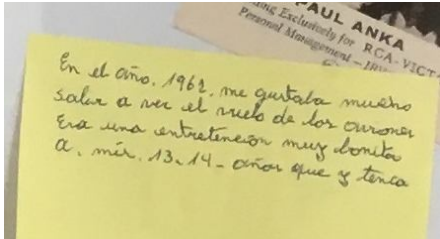 PAUL ANKA
ing Exclusively for RCA-VICT
Personal Management -
En el año. 1962. me gustaba mucho
salir a ver el vuelo de los aviones
Era una entretención muy bonita
a. mis. 13. 14 - años que y tenea